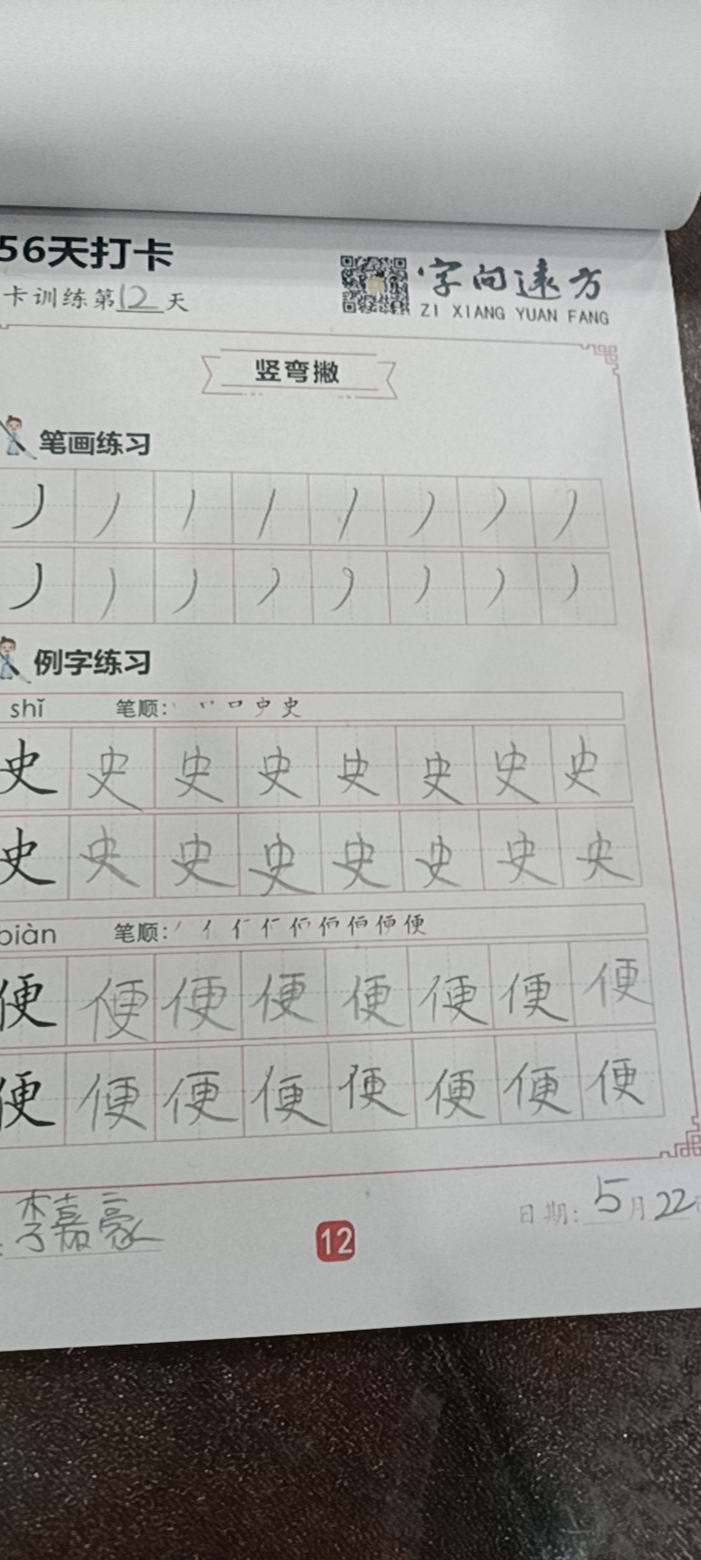 56天打卡
卡训练第12天
字向远方
ZI XIANG YUAN FANG
竖弯撇
笔画练习
丿 丿 丿 丿 丿 丿 丿 丿
丿 丿 丿 丿 丿 丿 丿 丿
例字练习
shǐ 笔顺: 史
史 史 史 史 史 史 史 史
史 史 史 史 史 史 史 史
biàn 笔顺: 丿 亻 便
便 便 便 便 便 便 便 便
便 便 便 便 便 便 便 便
李嘉豪
日期: 5月22
12